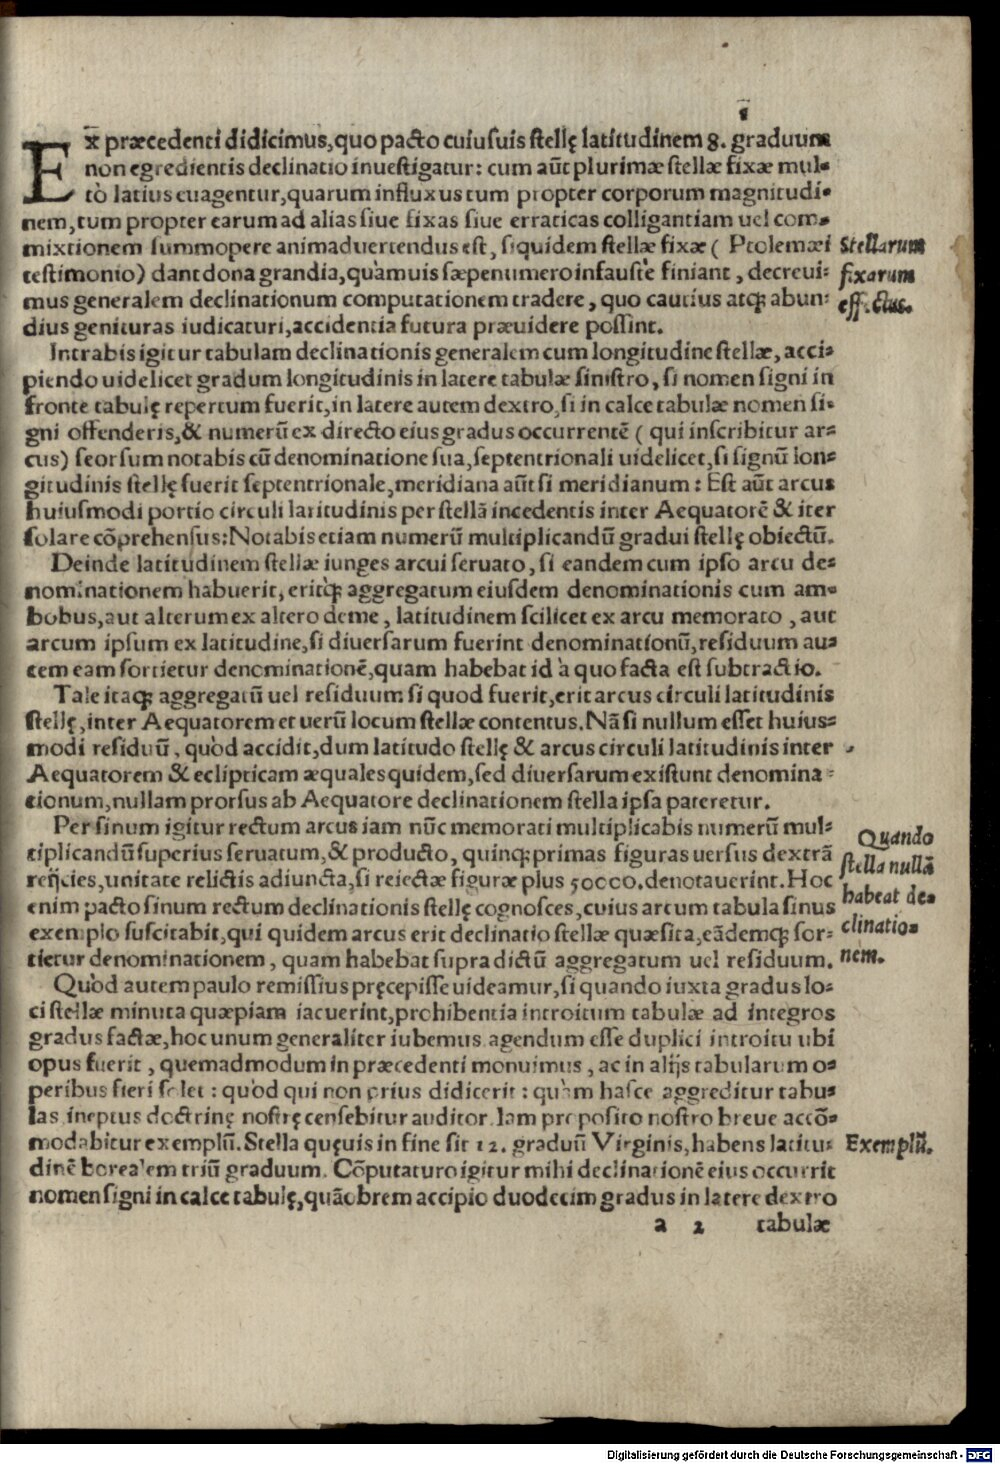 Ex præcedenti didicimus,quo pacto cuiusuis stellę latitudinem 8. graduum
non egredientis declinatio inuestigatur: cum aũt plurimæ stellæ fixæ mul-
tò latius euagentur,quarum influxus tum propter corporum magnitudi-
nem,tum propter earum ad alias siue fixas siue erraticas colligantiam uel com-
mixtionem summopere animaduertendus est, siquidem stellæ fixæ ( Ptolemæi
testimonio) dant dona grandia,quàmuis sæpenumero infaustè finiant, decreui-
mus generalem declinationum computationem tradere, quo cautius atqꝫ abun-
dius genituras iudicaturi,accidentia futura præuidere possint.
Stellarum
fixarum
effectus.
Intrabis igitur tabulam declinationis generalem cum longitudine stellæ, acci-
piendo uidelicet gradum longitudinis in latere tabulæ sinistro, si nomen signi in
fronte tabulę repertum fuerit,in latere autem dextro,si in calce tabulæ nomen si-
gni offenderis,& numerũ ex directo eius gradus occurrentẽ ( qui inscribitur ar-
cus) seorsum notabis cũ denominatione sua,septentrionali uidelicet,si signũ lon-
gitudinis stellę fuerit septentrionale,meridiana aũt si meridianum: Est aũt arcus
huiusmodi portio circuli latitudinis per stellã incedentis inter Aequatorẽ & iter
solare cõprehensus: Notabis etiam numerũ multiplicandũ gradui stellę obiectũ.
Deinde latitudinem stellæ iunges arcui seruato, si eandem cum ipso arcu de-
nominationem habuerit, eritqꝫ aggregatum eiusdem denominationis cum am-
bobus,aut alterum ex altero deme, latitudinem scilicet ex arcu memorato, aut
arcum ipsum ex latitudine,si diuersarum fuerint denominationũ,residuum au-
tem eam sortietur denominationẽ,quam habebat id à quo facta est subtractio.
Tale itaqꝫ aggregatũ uel residuum si quod fuerit,erit arcus circuli latitudinis
stellę,inter Aequatorem et uerũ locum stellæ contentus. Nã si nullum esset huius-
modi residuũ, quòd accidit,dum latitudo stellę & arcus circuli latitudinis inter
Aequatorem & eclipticam æquales quidem,sed diuersarum existunt denomina-
tionum,nullam prorsus ab Aequatore declinationem stella ipsa pateretur.
Per sinum igitur rectum arcus iam nũc memorati multiplicabis numerũ mul-
tiplicandũ superius seruatum,& producto, quinqꝫ primas figuras uersus dextrã
reijcies,unitate relictis adiuncta,si reiectæ figuræ plus 50000.denotauerint. Hoc
enim pacto sinum rectum declinationis stellę cognosces,cuius arcum tabula sinus
exemplo suscitabit,qui quidem arcus erit declinatio stellæ quæsita,eãdemqꝫ sor-
tietur denominationem, quam habebat supra dictũ aggregatum uel residuum.
Quando
stella nullã
habeat de-
clinatio-
nem.
Quòd autem paulo remissius pręcepisse uideamur,si quando iuxta gradus lo-
ci stellæ minuta quæpiam iacuerint,prohibentia introitum tabulæ ad integros
gradus factæ,hoc unum generaliter iubemus agendum esse duplici introitu ubi
opus fuerit, quemadmodum in præcedenti monuimus, ac in alijs tabularum o-
peribus fieri solet: quòd qui non prius didicerit: quàm hasce aggreditur tabu-
las ineptus doctrinę nostrę censebitur auditor. Iam proposito nostro breue accõ-
modabitur exemplũ. Stella quęuis in fine sit 12. graduũ Virginis, habens latitu-
dinẽ borealem triũ graduum. Cõputaturo igitur mihi declinationẽ eius occurrit
nomen signi in calce tabulę,quãobrem accipio duodecim gradus in latere dextro
Exemplũ.
a 2 tabulæ
Digitalisierung gefördert durch die Deutsche Forschungsgemeinschaft - DFG